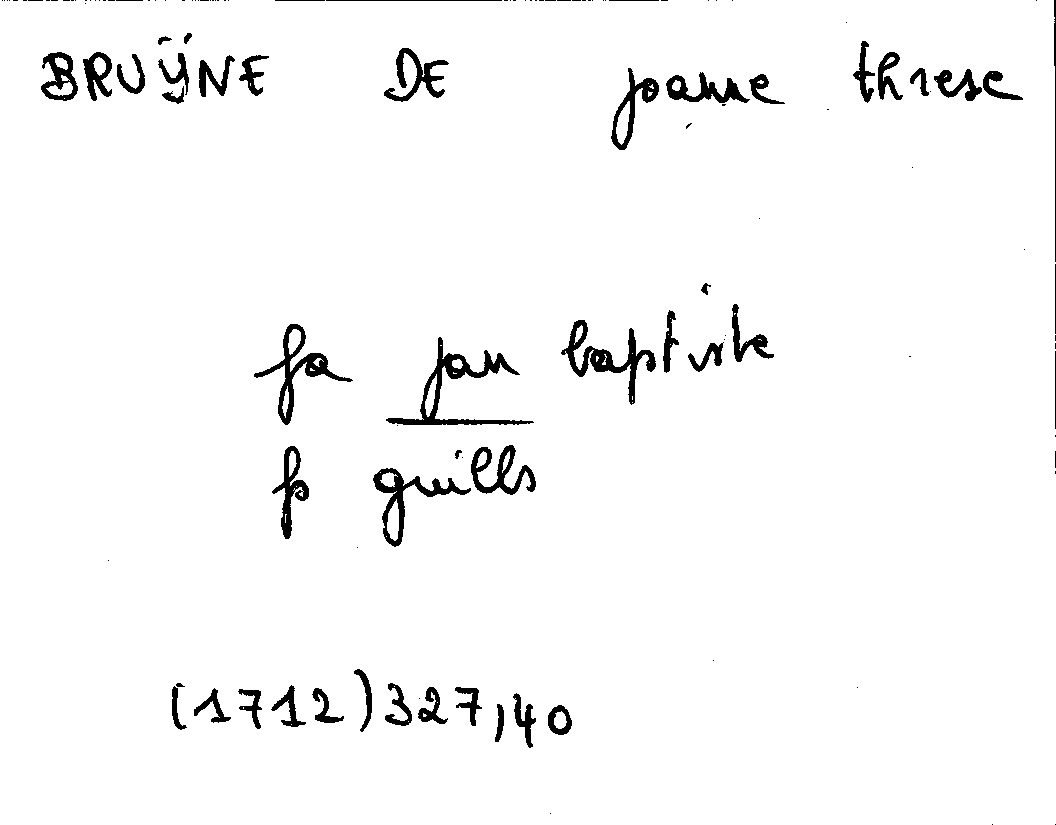 BRUŸNE DE joanne threse
fa jan baptiste
p guills
(1712)327,40